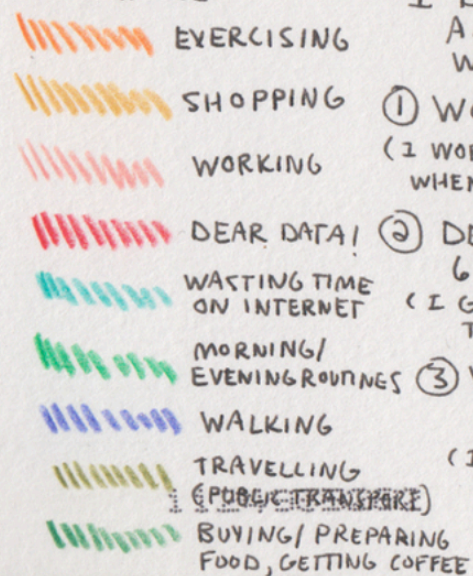 EXERCISING
SHOPPING
WORKING
DEAR DATA!
WASTING TIME
ON INTERNET
MORNING/
EVENING ROUTINES
WALKING
TRAVELLING
(PUBLIC TRANSPORT)
BUYING/ PREPARING
FOOD, GETTING COFFEE
I
A
W
① WO
(I WOR
WHEN
② DE
6
(I G
T
③
(I